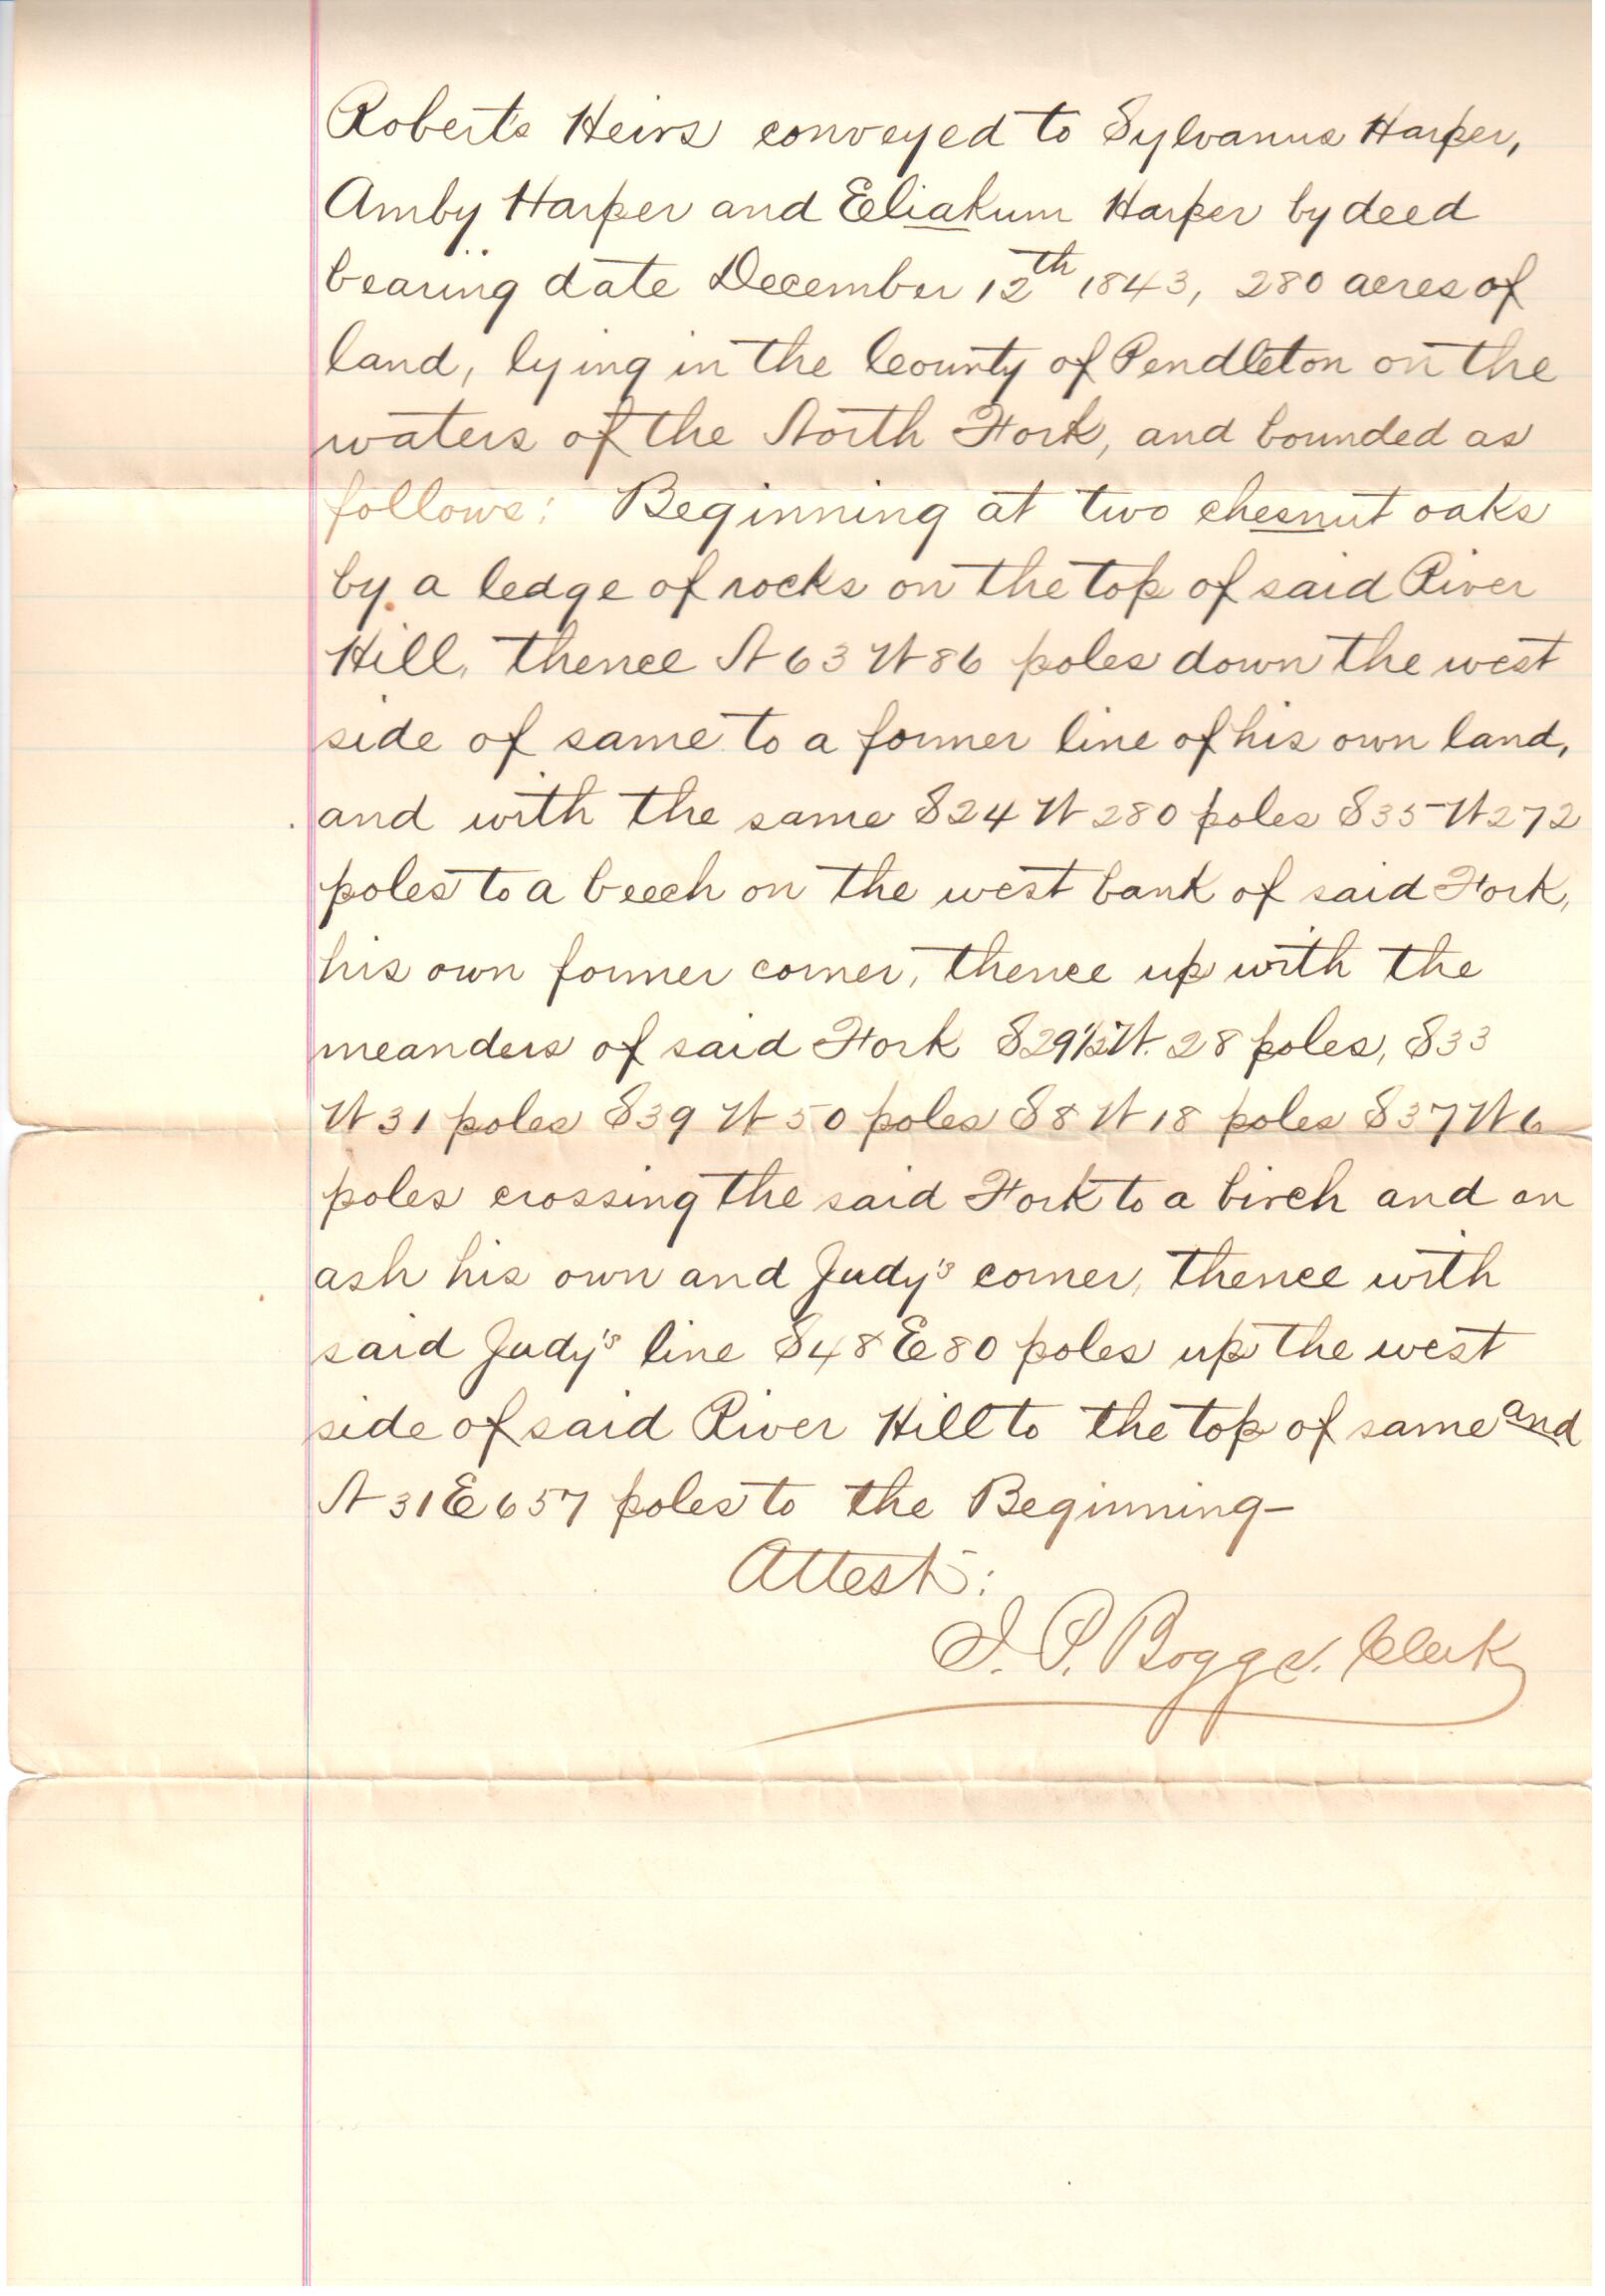 Roberts Heirs conveyed to Sylvanus Harper,
Amby Harper and Eliakum Harper by deed
bearing date December 12th 1843, 280 acres of
land, lying in the County of Pendleton on the
waters of the North Fork, and bounded as
follows: Beginning at two chesnut oaks
by a ledge of rocks on the top of said River
Hill, thence N 63 W 86 poles down the west
side of same to a former line of his own land,
and with the same S 24 W 280 poles S 35 W 272
poles to a beech on the west bank of said Fork,
his own former corner, thence up with the
meanders of said Fork S 29½ W. 28 poles, S 33
W 31 poles S 39 W 50 poles S 8 W 18 poles S 37 W 6
poles crossing the said Fork to a birch and an
ash his own and Judy's corner, thence with
said Judy's line S 48 E 80 poles up the west
side of said River Hill to the top of same and
N 31 E 657 poles to the Beginning—
Attest:
I. P. Boggs. Clerk